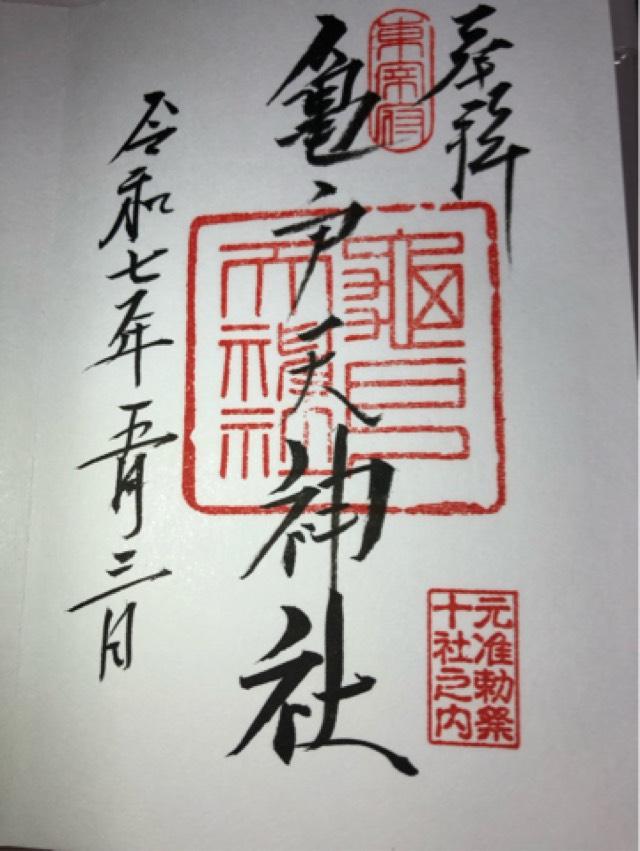 奉拝
東宰府
亀戸天神社
亀戸天神社
元准勅祭
十社之内
令和七年五月三日